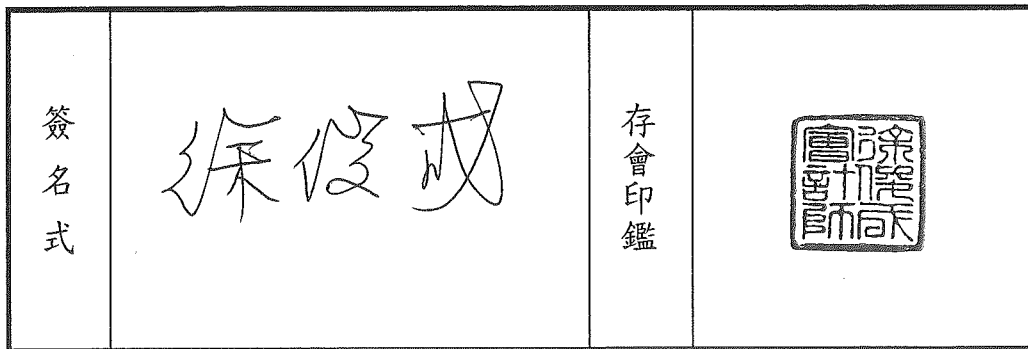 簽名式
徐俊成
存會印鑑
徐俊成
會計師